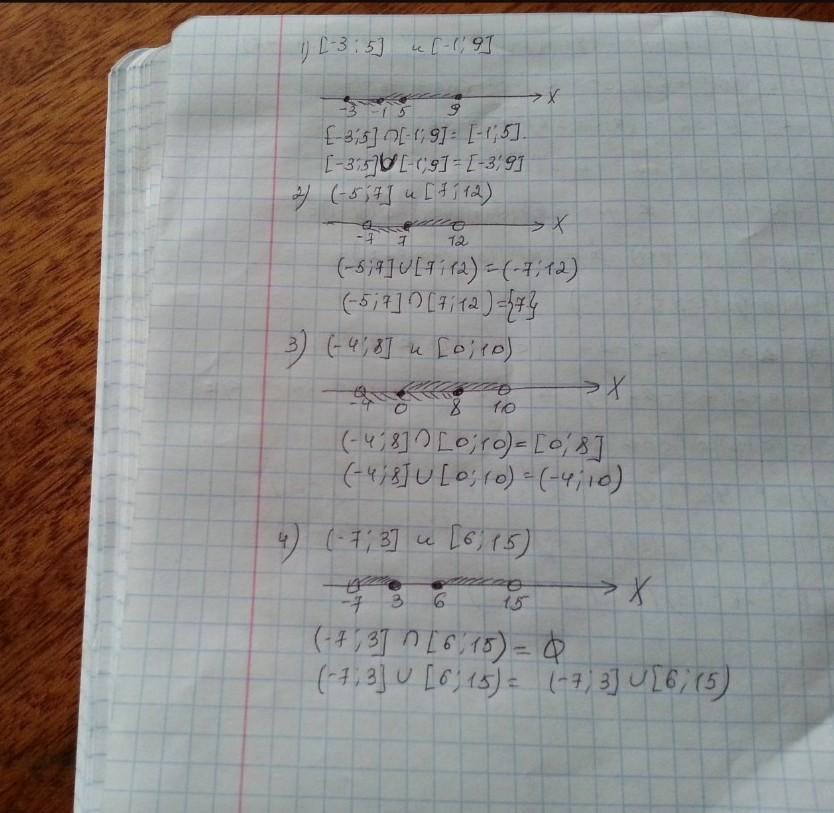 1) [-3; 5] и [-1; 9]
-3 -1 5 9 X
[-3;5]∩[-1;9]= [-1;5].
[-3;5]∪[-1;9]=[-3;9]
2) (-5;7] и [7;12)
-7 7 12 X
(-5;7]∪[7;12)=(-7;12)
(-5;7]∩[7;12)={7}
3) (-4;8] и [0;10)
-4 0 8 10 X
(-4;8]∩[0;10)=[0;8]
(-4;8]∪[0;10)=(-4;10)
4) (-7;3] и [6;15)
-7 3 6 15 X
(-7;3]∩[6;15)= ∅
(-7;3]∪[6;15)= (-7;3]∪[6;15)